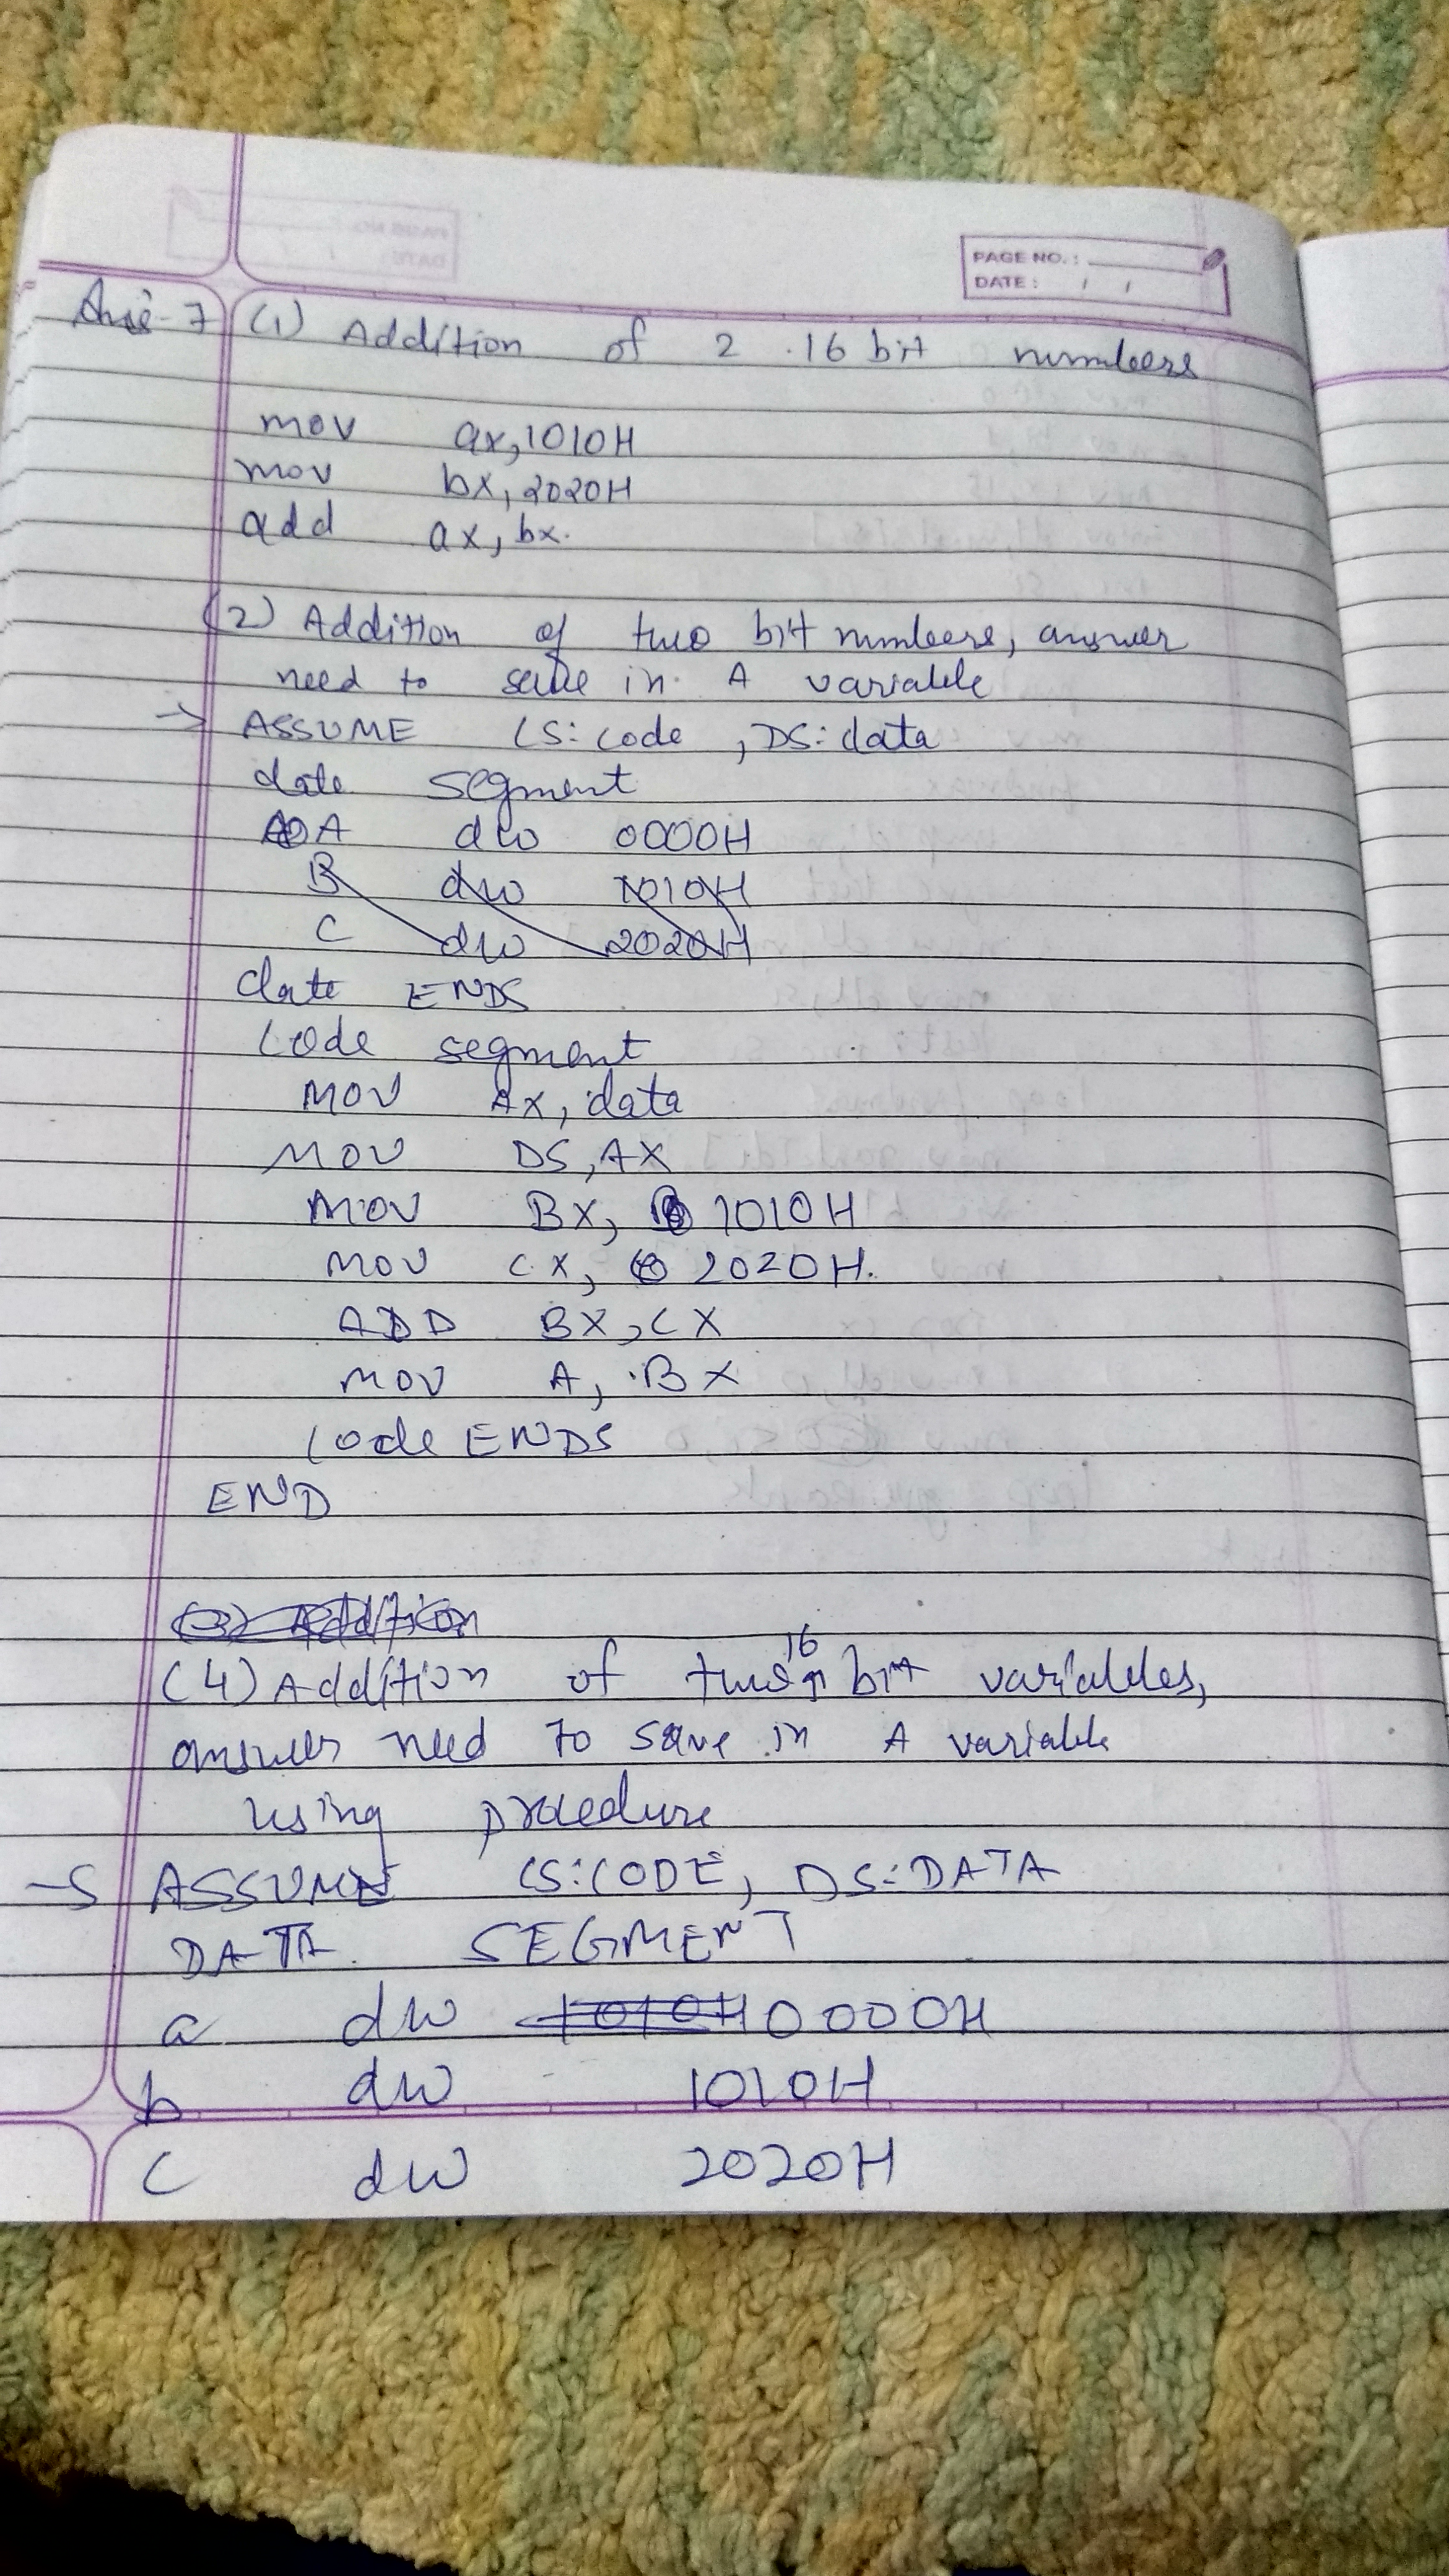 PAGE NO. :
DATE : / /
Ans-7 (1) Addition of 2 16 bit numbers
mov ax, 1010H
mov bx, 2020H
add ax, bx.
(2) Addition of two bit numbers, answer
need to save in A variable
→ ASSUME CS: code, DS: data
data segment
A dw 0000H
B dw 1010H
C dw 2020H
data ENDS
Code segment
MOV AX, data
MOV DS, AX
MOV BX, 1010H
MOV CX, 2020H.
ADD BX, CX
MOV A, BX
Code ENDS
END
(3) Addition
(4) Addition of two 16 bit variables,
answer need to save in A variable
using procedure
→ ASSUME CS: CODE, DS: DATA
DATA SEGMENT
a dw 1010H 0000H
b dw 1010H
c dw 2020H